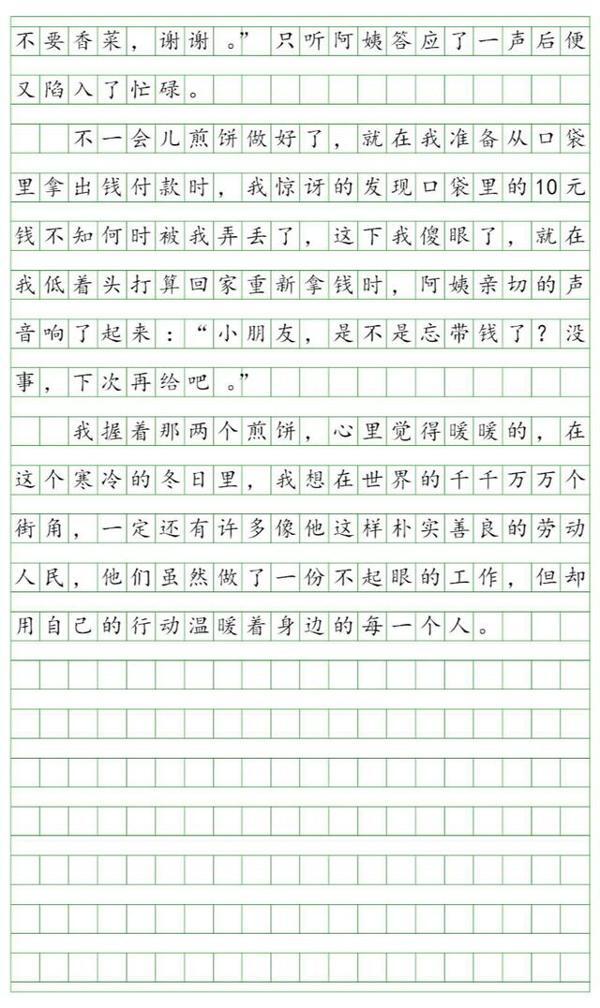 不要香菜，谢谢。” 只听阿姨答应了一声后便
又陷入了忙碌。
不一会儿煎饼做好了，就在我准备从口袋
里拿出钱付款时，我惊讶的发现口袋里的10元
钱不知何时被我弄丢了，这下我傻眼了，就在
我低着头打算回家重新拿钱时，阿姨亲切的声
音响了起来：“小朋友，是不是忘带钱了？没
事，下次再给吧。”
我握着那两个煎饼，心里觉得暖暖的，在
这个寒冷的冬日里，我想在世界的千千万万个
街角，一定还有许多像他这样朴实善良的劳动
人民，他们虽然做了一份不起眼的工作，但却
用自己的行动温暖着身边的每一个人。